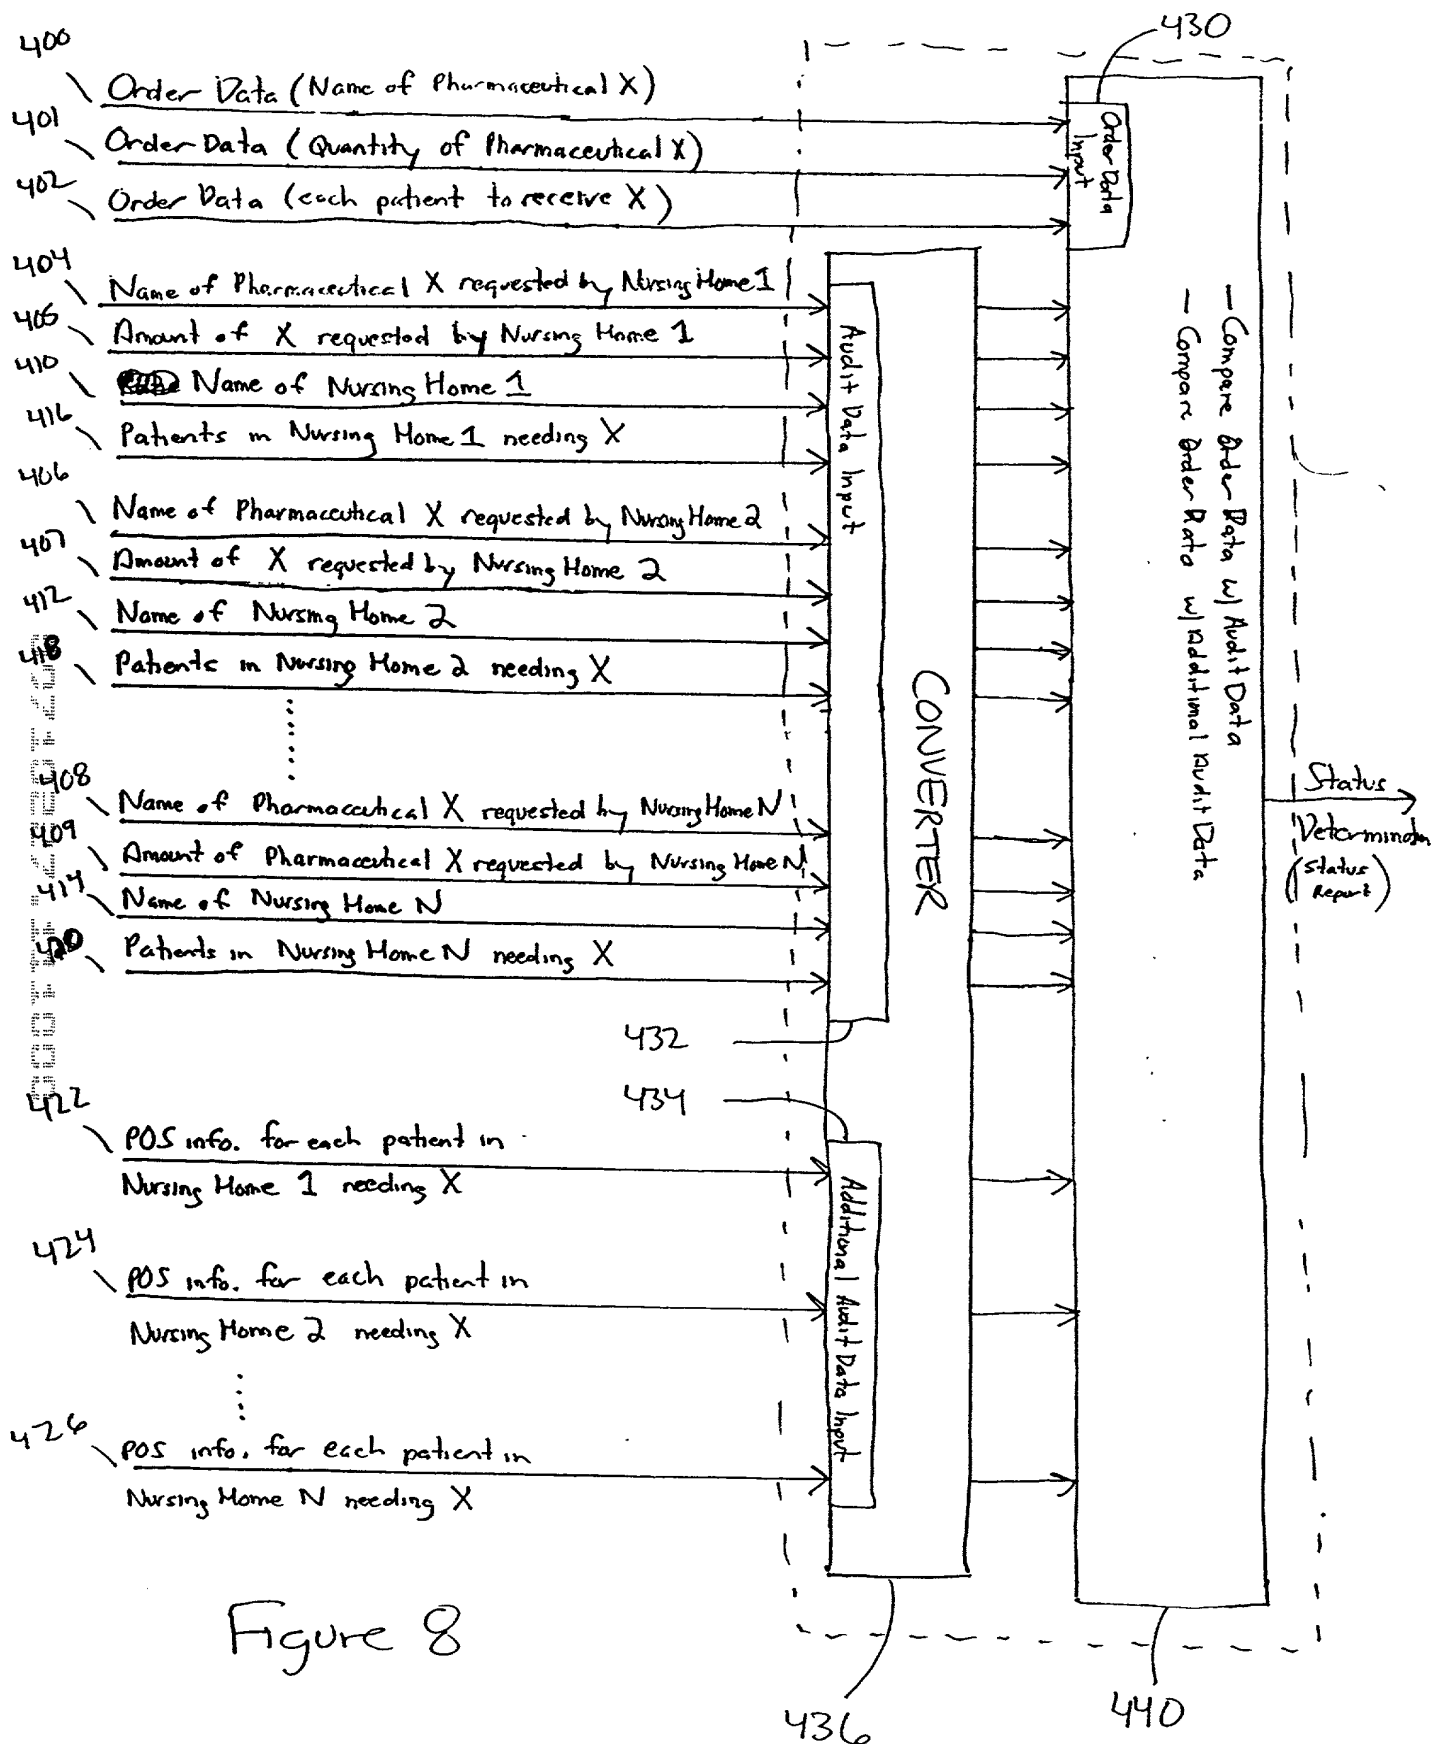 400
Order Data (Name of Pharmaceutical X)
401
Order Data (Quantity of Pharmaceutical X)
402
Order Data (each patient to receive X)
404
Name of Pharmaceutical X requested by Nursing Home 1
405
Amount of X requested by Nursing Home 1
410
Name of Nursing Home 1
416
Patients in Nursing Home 1 needing X
406
Name of Pharmaceutical X requested by Nursing Home 2
407
Amount of X requested by Nursing Home 2
412
Name of Nursing Home 2
418
Patients in Nursing Home 2 needing X
408
Name of Pharmaceutical X requested by Nursing Home N
409
Amount of Pharmaceutical X requested by Nursing Home N
414
Name of Nursing Home N
420
Patients in Nursing Home N needing X
422
POS info. for each patient in
Nursing Home 1 needing X
424
POS info. for each patient in
Nursing Home 2 needing X
426
POS info. for each patient in
Nursing Home N needing X
430
Order Data
Input
Audit Data Input
432
434
Additional Audit Data Input
CONVERTER
– Compare Order Data w/ Audit Data
– Compare Order Data w/ Additional Audit Data
Status
Determination
(Status
Report)
436
440
Figure 8